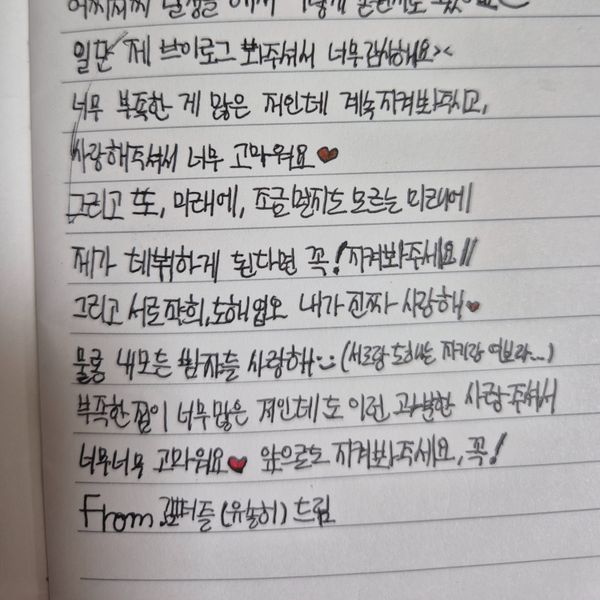 일단 제 브이로그 봐주셔서 너무 감사해요><
너무 부족한 게 많은 저인데 계속 지켜봐주시고,
사랑해주셔서 너무 고마워요♥
그리고 또, 미래에, 조금 멀지도 모르는 미래에
제가 데뷔하게 된다면 꼭! 지켜봐주세요!!
그리고 서로 내가 진짜 사랑해♥
물론 내모든 사랑해:) (서로랑 도해는 자기랑
부족한점이 너무 많은 저인데도 이런 과분한 사랑주셔서
너무너무 고마워요♥ 앞으로도 지켜봐주세요, 꼭!
From 드림